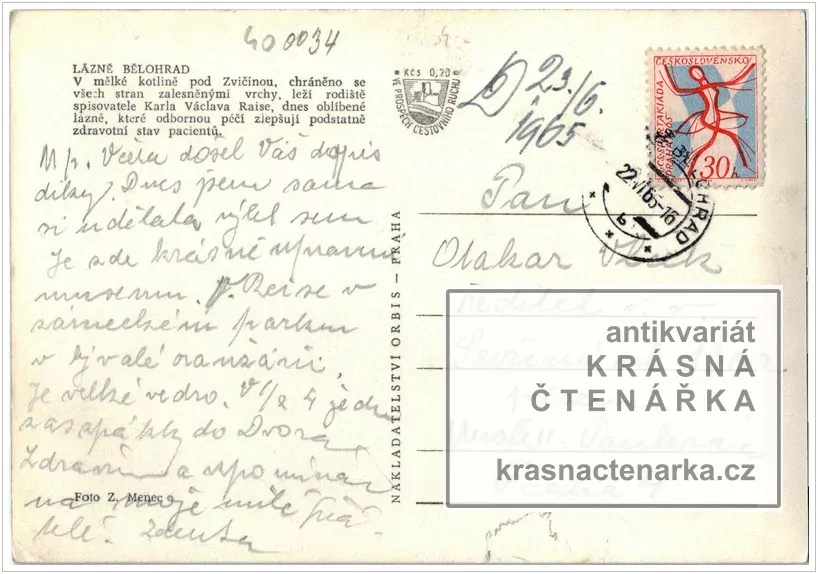 400034
LÁZNĚ BĚLOHRAD
V mělké kotlině pod Zvičinou, chráněno se
všech stran zalesněnými vrchy, leží rodiště
spisovatele Karla Václava Raise, dnes oblíbené
lázně, které odbornou péčí zlepšují podstatně
zdravotní stav pacientů.
Kčs 0,20
VE PROSPĚCH CESTOVNÍHO RUCHU
23/6.
1965
ČESKOSLOVENSKO
30h
22.VI.65-16
M p. Včera došel Váš dopis
díky. Dnes jsem sama
si udělala výlet sem
Je zde krásně upravené
museum. Reise v
zámeckém parku
v bývalé oranžérii.
Je velké vedro. V 1/2 4 jedu
zas zpátky do Dvora
Zdravím a vzpomínám
na moje milé přá-
telé. Zdenka
Foto Z. Menec
NAKLADATELSTVÍ ORBIS — PRAHA
Pan
Otakar
ředitel v. v.
antikvariát
KRÁSNÁ
ČTENÁŘKA
krasnactenarka.cz